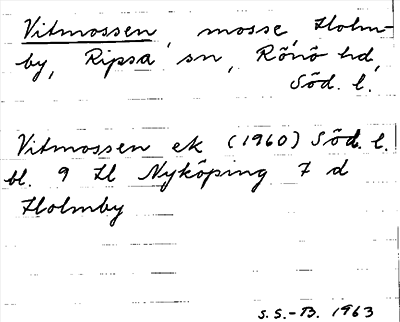 Vitmossen, mosse, Holm-
by, Ripsa sn, Rönö hd,
Söd. l.
Vitmossen ek (1960) Söd. l.
bl. 9 H Nyköping 7 d
Holmby
S.S.-B. 1963